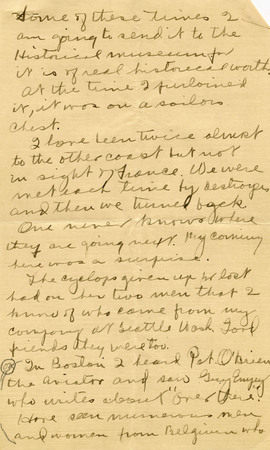 Some of these times I
am going to send it to the
Historical museum for
it is of real historical worth.
At the time I purloined
it, it was on a sailors
chest.
I have been twice almost
to the other coast but not
in sight of France. We were
met each time by destroyers
and then we turned back.
One never knows where
they are going next. My coming
here was a surprise.
The Cyclops given up as lost
had on her two men that I
knew of who came from my
company at Seattle Wash. Ford
friends they were too.
In Boston I heard Pat O'Brien
the aviator and saw Guy Empey
who writes about "Over there".
Have seen numerous men
and women from Belgium who